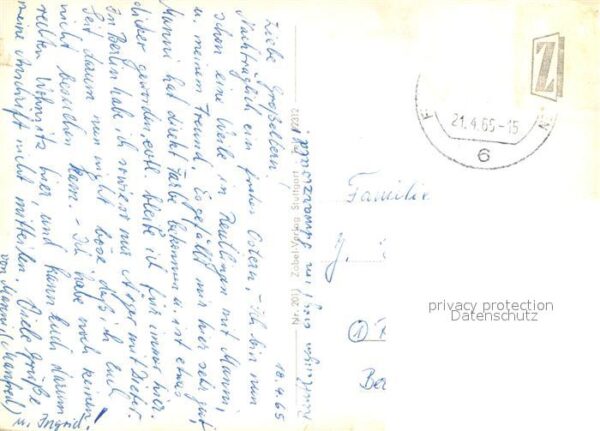 18.4.65
Liebe Großeltern!
Nachträglich ein frohes Ostern, - ich bin nun
schon eine Weile in Reutlingen mit Manni,
u. meinem Freund. Es gefällt mir hier sehr gut,
Manni hat direkt Farbe bekommen u. ist etwas
dicker geworden, evtl. bleibe ich für immer hier.
In Berlin habe ich sowieso nur Ärger mit Dieter.
Seit darum nun nicht böse daß ich Euch
nicht besuchen kann. - Ich habe noch keinen
rechten Wohnsitz hier, und kann Euch darum
meine Anschrift nicht mitteilen. Viele Grüße
von Manni (Manfred)
u. Ingrid!
Nr. 2013 Zobel-Verlag Stuttgart
Reutlingen
Z
21.4.65-15
6
Familie
J.
①
Ber
privacy protection
Datenschutz